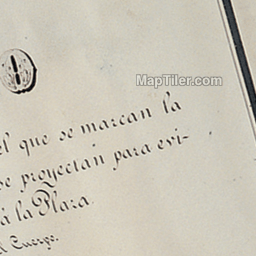 MapTiler.com
el que se marcan la
se proyectan para evi-
á la Plaza.
Cuerpo.